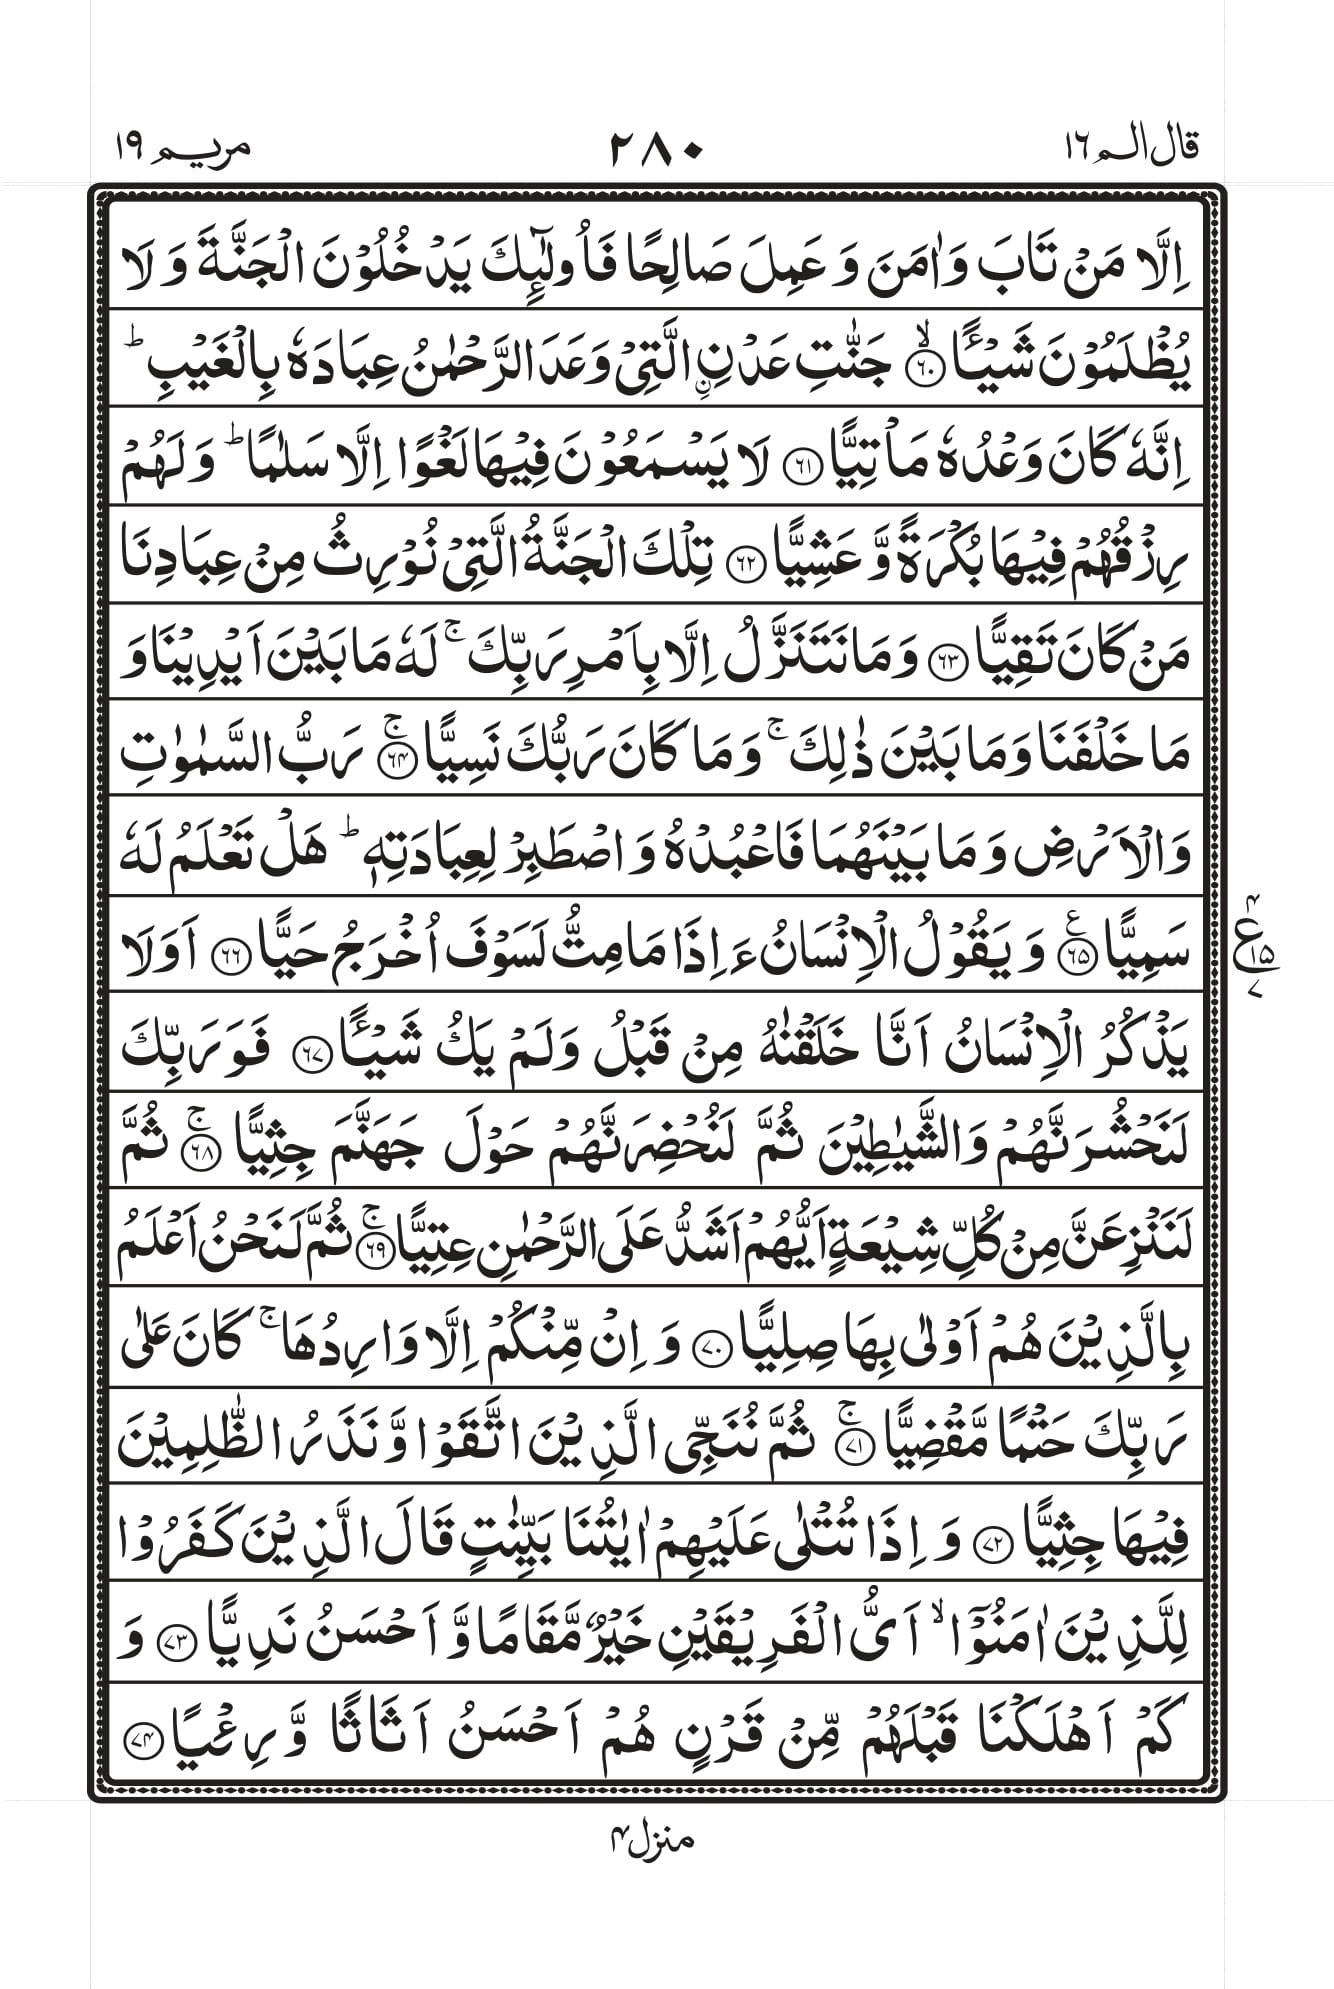 قال الم ١٦
٢٨٠
مريم ١٩
اِلَّا مَنْ تَابَ وَاٰمَنَ وَ عَمِلَ صَالِحًا فَاُولٰٓئِكَ يَدْخُلُوْنَ الْجَنَّةَ وَ لَا
يُظْلَمُوْنَ شَيْـًٔا ۙ‏﴿۶۰﴾ جَنّٰتِ عَدْنِ ۨالَّتِىْ وَعَدَ الرَّحْمٰنُ عِبَادَهٗ بِالْغَيْبِ ؕ
اِنَّهٗ كَانَ وَعْدُهٗ مَاْتِيًّا ﴿۶۱﴾ لَا يَسْمَعُوْنَ فِيْهَا لَغْوًا اِلَّا سَلٰمًا ؕ وَ لَهُمْ
رِزْقُهُمْ فِيْهَا بُكْرَةً وَّ عَشِيًّا ﴿۶۲﴾ تِلْكَ الْجَنَّةُ الَّتِىْ نُوْرِثُ مِنْ عِبَادِنَا
مَنْ كَانَ تَقِيًّا ﴿۶۳﴾ وَ مَا نَتَنَزَّلُ اِلَّا بِاَمْرِ رَبِّكَ ۚ لَهٗ مَا بَيْنَ اَيْدِيْنَا وَ
مَا خَلْفَنَا وَ مَا بَيْنَ ذٰلِكَ ۚ وَ مَا كَانَ رَبُّكَ نَسِيًّا ۚ﴿۶۴﴾ رَبُّ السَّمٰوٰتِ
وَالْاَرْضِ وَ مَا بَيْنَهُمَا فَاعْبُدْهُ وَ اصْطَبِرْ لِعِبَادَتِهٖ ؕ هَلْ تَعْلَمُ لَهٗ
سَمِيًّا ﴿۶۵﴾ ع وَ يَقُوْلُ الْاِنْسَانُ ءَاِذَا مَا مِتُّ لَسَوْفَ اُخْرَجُ حَيًّا ﴿۶۶﴾ اَوَلَا
۴
ع ۱۵
۷
يَذْكُرُ الْاِنْسَانُ اَنَّا خَلَقْنٰهُ مِنْ قَبْلُ وَلَمْ يَكُ شَيْـًٔا ﴿۶۷﴾ فَوَرَبِّكَ
لَنَحْشُرَنَّهُمْ وَالشَّيٰطِيْنَ ثُمَّ لَنُحْضِرَنَّهُمْ حَوْلَ جَهَنَّمَ جِثِيًّا ۚ﴿۶۸﴾ ثُمَّ
لَنَنْزِعَنَّ مِنْ كُلِّ شِيْعَةٍ اَيُّهُمْ اَشَدُّ عَلَى الرَّحْمٰنِ عِتِيًّا ۚ﴿۶۹﴾ ثُمَّ لَنَحْنُ اَعْلَمُ
بِالَّذِيْنَ هُمْ اَوْلٰى بِهَا صِلِيًّا ﴿۷۰﴾ وَ اِنْ مِّنْكُمْ اِلَّا وَارِدُهَا ۚ كَانَ عَلٰى
رَبِّكَ حَتْمًا مَّقْضِيًّا ۚ﴿۷۱﴾ ثُمَّ نُنَجِّى الَّذِيْنَ اتَّقَوْا وَّ نَذَرُ الظّٰلِمِيْنَ
فِيْهَا جِثِيًّا ﴿۷۲﴾ وَ اِذَا تُتْلٰى عَلَيْهِمْ اٰيٰتُنَا بَيِّنٰتٍ قَالَ الَّذِيْنَ كَفَرُوْا
لِلَّذِيْنَ اٰمَنُوْۤا ۙ اَىُّ الْفَرِيْقَيْنِ خَيْرٌ مَّقَامًا وَّ اَحْسَنُ نَدِيًّا ﴿۷۳﴾ وَ
كَمْ اَهْلَكْنَا قَبْلَهُمْ مِّنْ قَرْنٍ هُمْ اَحْسَنُ اَثَاثًا وَّ رِءْيًا ﴿۷۴﴾
منزل ۴